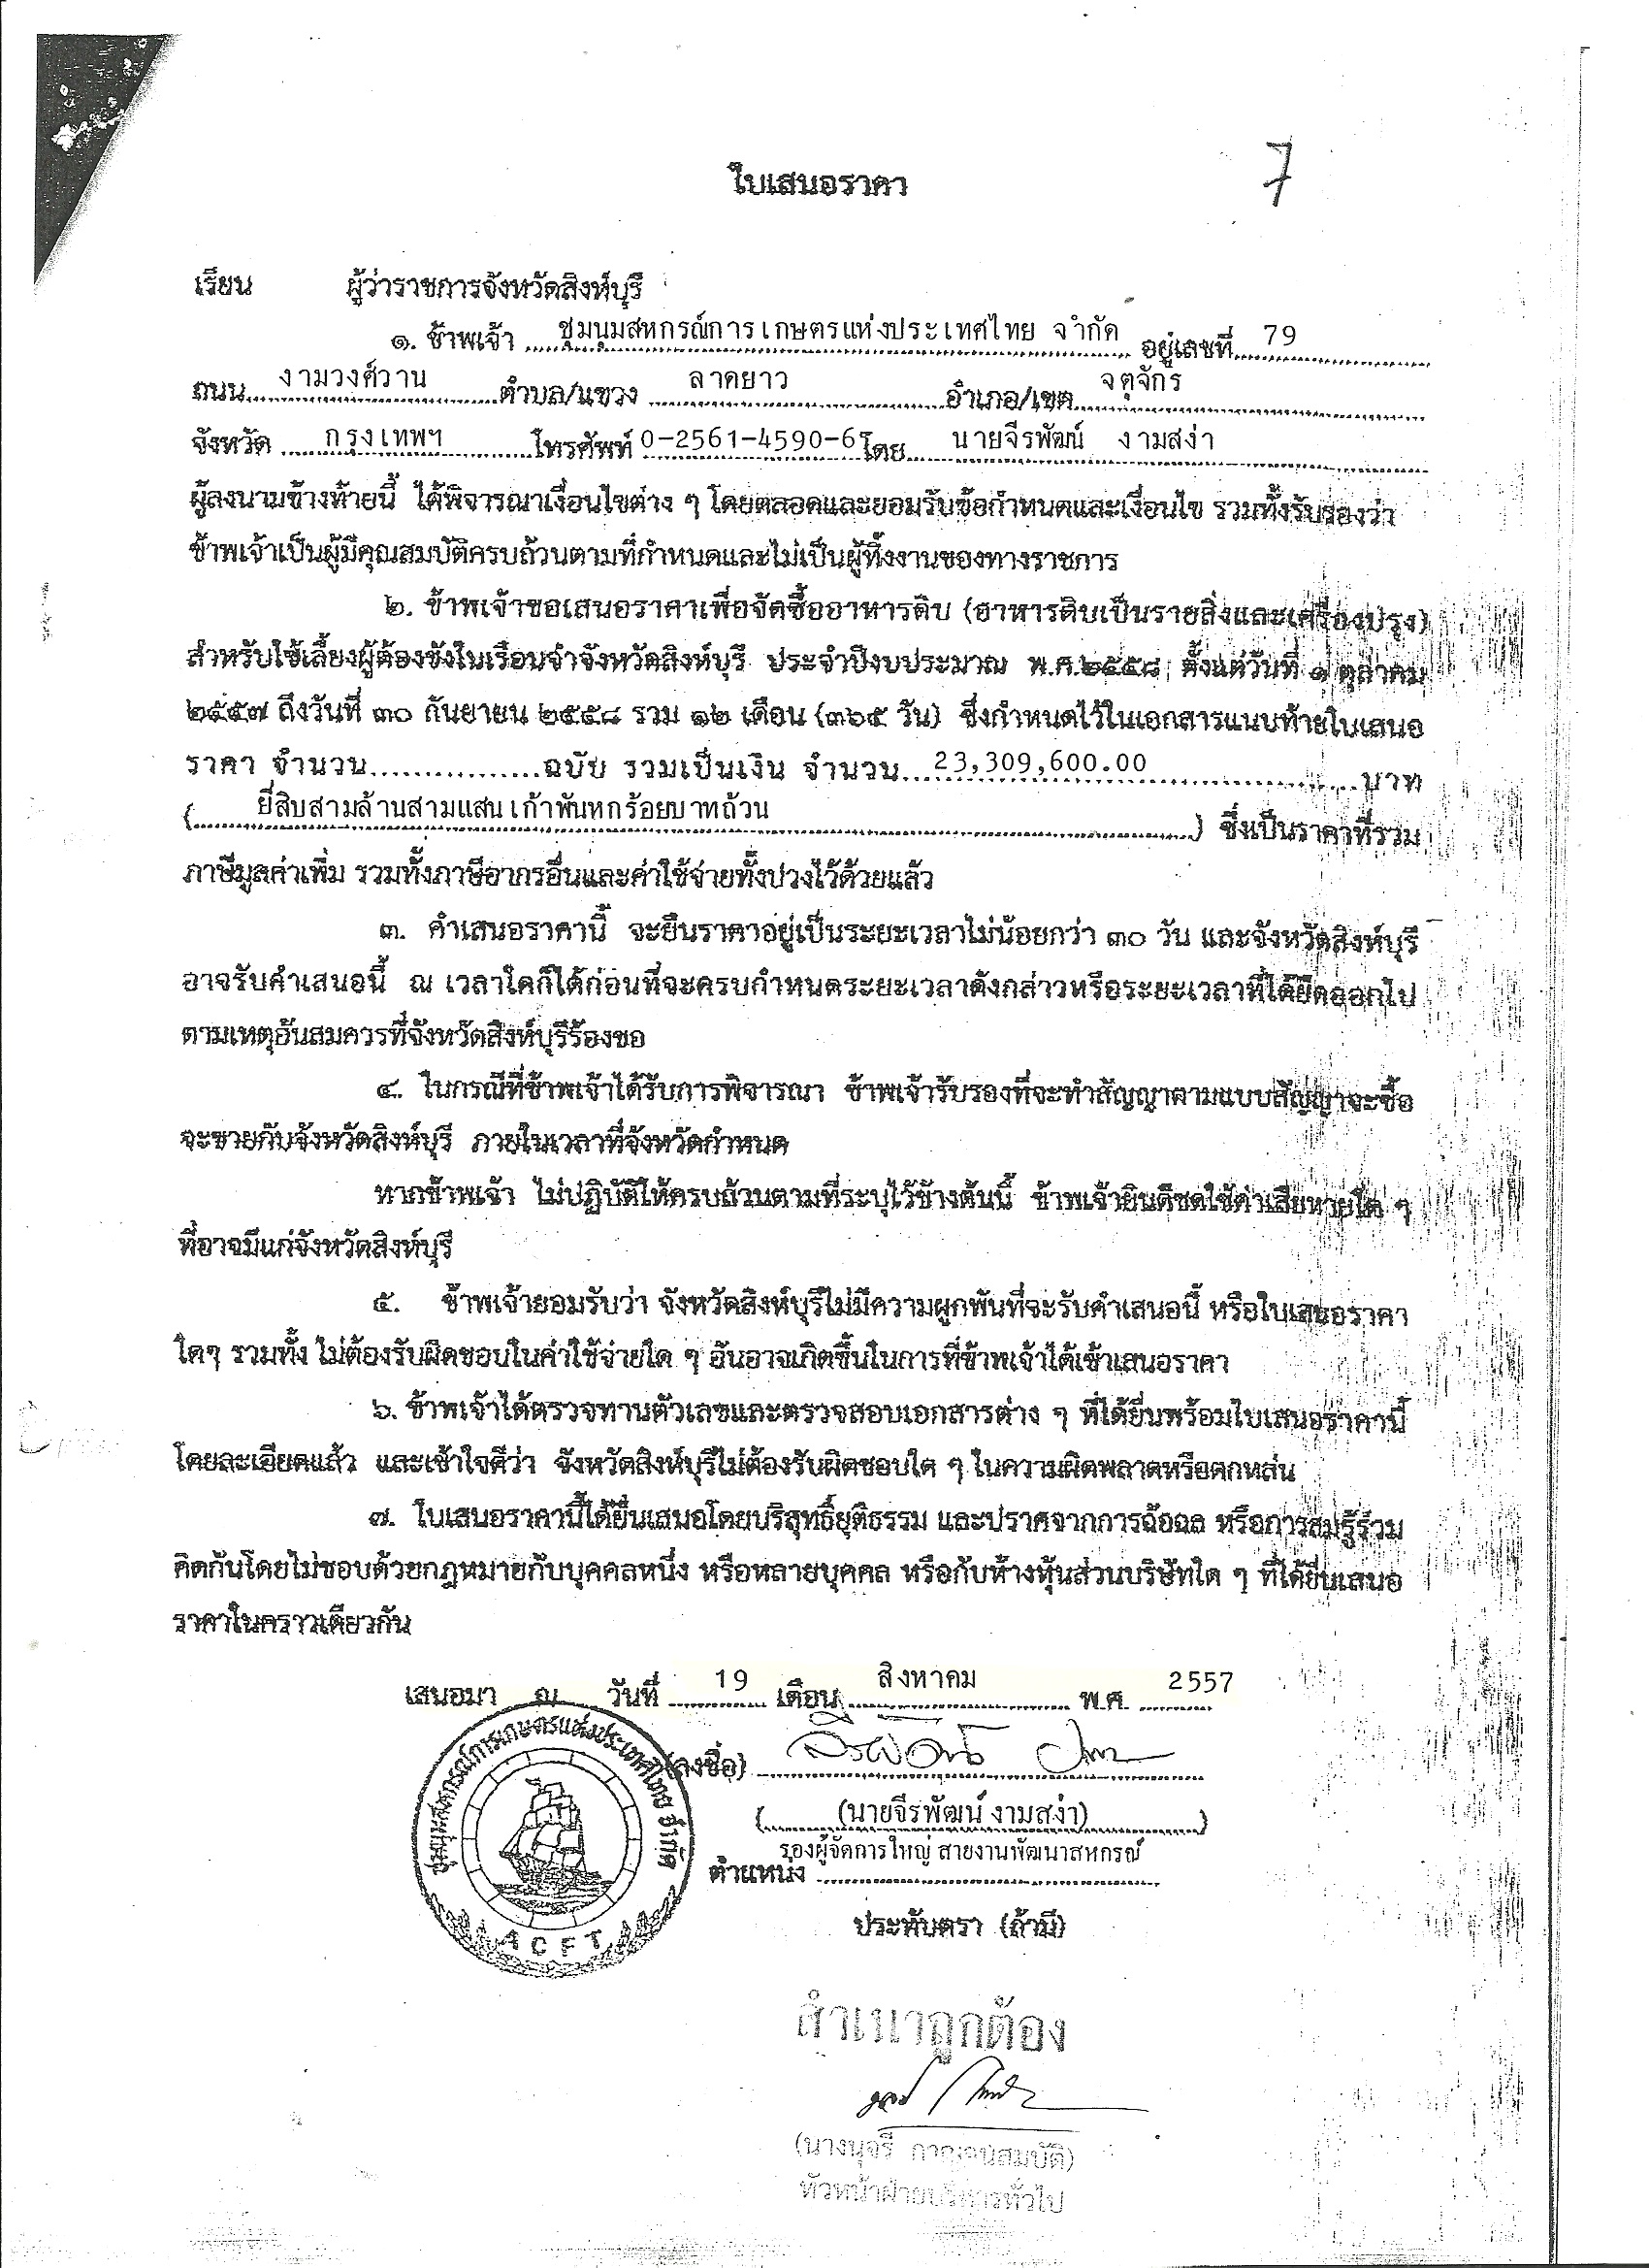 7
ใบเสนอราคา
เรียน ผู้ว่าราชการจังหวัดสิงห์บุรี
๑. ข้าพเจ้า ชุมนุมสหกรณ์การเกษตรแห่งประเทศไทย จำกัด อยู่เลขที่ 79
ถนน งามวงศ์วาน ตำบล/แขวง ลาดยาว อำเภอ/เขต จตุจักร
จังหวัด กรุงเทพฯ โทรศัพท์ 0-2561-4590-6 โดย นายจีรพัฒน์ งามสง่า
ผู้ลงนามข้างท้ายนี้ ได้พิจารณาเงื่อนไขต่าง ๆ โดยตลอดและยอมรับข้อกำหนดและเงื่อนไข รวมทั้งรับรองว่า
ข้าพเจ้าเป็นผู้มีคุณสมบัติครบถ้วนตามที่กำหนดและไม่เป็นผู้ทิ้งงานของทางราชการ
๒. ข้าพเจ้าขอเสนอราคาเพื่อจัดซื้ออาหารดิบ (อาหารดิบเป็นรายสิ่งและเครื่องปรุง)
สำหรับใช้เลี้ยงผู้ต้องขังในเรือนจำจังหวัดสิงห์บุรี ประจำปีงบประมาณ พ.ศ.๒๕๕๘ ตั้งแต่วันที่ ๑ ตุลาคม
๒๕๕๗ ถึงวันที่ ๓๐ กันยายน ๒๕๕๘ รวม ๑๒ เดือน (๓๖๕ วัน) ซึ่งกำหนดไว้ในเอกสารแนบท้ายใบเสนอ
ราคา จำนวน................ฉบับ รวมเป็นเงิน จำนวน...23,309,600.00...บาท
(...ยี่สิบสามล้านสามแสนเก้าพันหกร้อยบาทถ้วน...) ซึ่งเป็นราคาที่รวม
ภาษีมูลค่าเพิ่ม รวมทั้งภาษีอากรอื่นและค่าใช้จ่ายทั้งปวงไว้ด้วยแล้ว
๓. คำเสนอราคานี้ จะยืนราคาอยู่เป็นระยะเวลาไม่น้อยกว่า ๓๐ วัน และจังหวัดสิงห์บุรี
อาจรับคำเสนอนี้ ณ เวลาใดก็ได้ก่อนที่จะครบกำหนดระยะเวลาดังกล่าวหรือระยะเวลาที่ได้ยืดออกไป
ตามเหตุอันสมควรที่จังหวัดสิงห์บุรีร้องขอ
๔. ในกรณีที่ข้าพเจ้าได้รับการพิจารณา ข้าพเจ้ารับรองที่จะทำสัญญาตามแบบสัญญาจะซื้อ
จะขายกับจังหวัดสิงห์บุรี ภายในเวลาที่จังหวัดกำหนด
หากข้าพเจ้า ไม่ปฏิบัติให้ครบถ้วนตามที่ระบุไว้ข้างต้นนี้ ข้าพเจ้ายินดีชดใช้ค่าเสียหายใด ๆ
ที่อาจมีแก่จังหวัดสิงห์บุรี
๕. ข้าพเจ้ายอมรับว่า จังหวัดสิงห์บุรีไม่มีความผูกพันที่จะรับคำเสนอนี้ หรือใบเสนอราคา
ใดๆ รวมทั้ง ไม่ต้องรับผิดชอบในค่าใช้จ่ายใด ๆ อันอาจเกิดขึ้นในการที่ข้าพเจ้าได้เข้าเสนอราคา
๖. ข้าพเจ้าได้ตรวจทานตัวเลขและตรวจสอบเอกสารต่าง ๆ ที่ได้ยื่นพร้อมใบเสนอราคานี้
โดยละเอียดแล้ว และเข้าใจดีว่า จังหวัดสิงห์บุรีไม่ต้องรับผิดชอบใด ๆ ในความผิดพลาดหรือตกหล่น
๗. ใบเสนอราคานี้ได้ยื่นเสนอโดยบริสุทธิ์ยุติธรรม และปราศจากการฉ้อฉล หรือการสมรู้ร่วม
คิดกันโดยไม่ชอบด้วยกฎหมายกับบุคคลหนึ่ง หรือหลายบุคคล หรือกับห้างหุ้นส่วนบริษัทใด ๆ ที่ได้ยื่นเสนอ
ราคาในคราวเดียวกัน
เสนอมา ณ วันที่ 19 เดือน สิงหาคม พ.ศ. 2557
ชุมนุมสหกรณ์การเกษตรแห่งประเทศไทย จำกัด
ACFT
(ลงชื่อ) จีรพัฒน์
(นายจีรพัฒน์ งามสง่า)
รองผู้จัดการใหญ่ สายงานพัฒนาสหกรณ์
ตำแหน่ง
ประทับตรา (ถ้ามี)
สำเนาถูกต้อง
(นางนุจรี กาญจนสมบัติ)
หัวหน้าฝ่ายบริหารทั่วไป